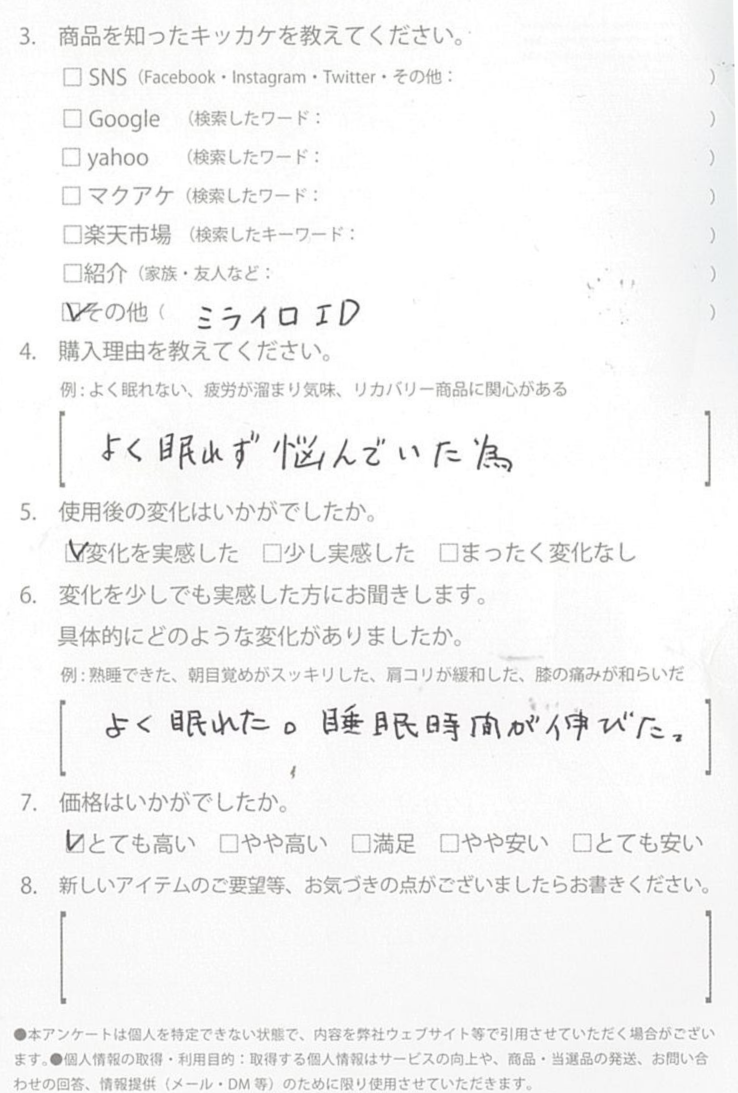 3. 商品を知ったキッカケを教えてください。
□ SNS（Facebook・Instagram・Twitter・その他： ）
□ Google （検索したワード： ）
□ yahoo （検索したワード： ）
□ マクアケ（検索したワード： ）
□楽天市場 （検索したキーワード： ）
□紹介（家族・友人など： ）
☑その他（ ミライロID ）
4. 購入理由を教えてください。
例：よく眠れない、疲労が溜まり気味、リカバリー商品に関心がある
よく眠れず悩んでいた為
5. 使用後の変化はいかがでしたか。
☑変化を実感した □少し実感した □まったく変化なし
6. 変化を少しでも実感した方にお聞きします。
具体的にどのような変化がありましたか。
例：熟睡できた、朝目覚めがスッキリした、肩コリが緩和した、膝の痛みが和らいだ
よく眠れた。睡眠時間が伸びた。
7. 価格はいかがでしたか。
☑とても高い □やや高い □満足 □やや安い □とても安い
8. 新しいアイテムのご要望等、お気づきの点がございましたらお書きください。
●本アンケートは個人を特定できない状態で、内容を弊社ウェブサイト等で引用させていただく場合がござい
ます。●個人情報の取得・利用目的：取得する個人情報はサービスの向上や、商品・当選品の発送、お問い合
わせの回答、情報提供（メール・DM 等）のために限り使用させていただきます。